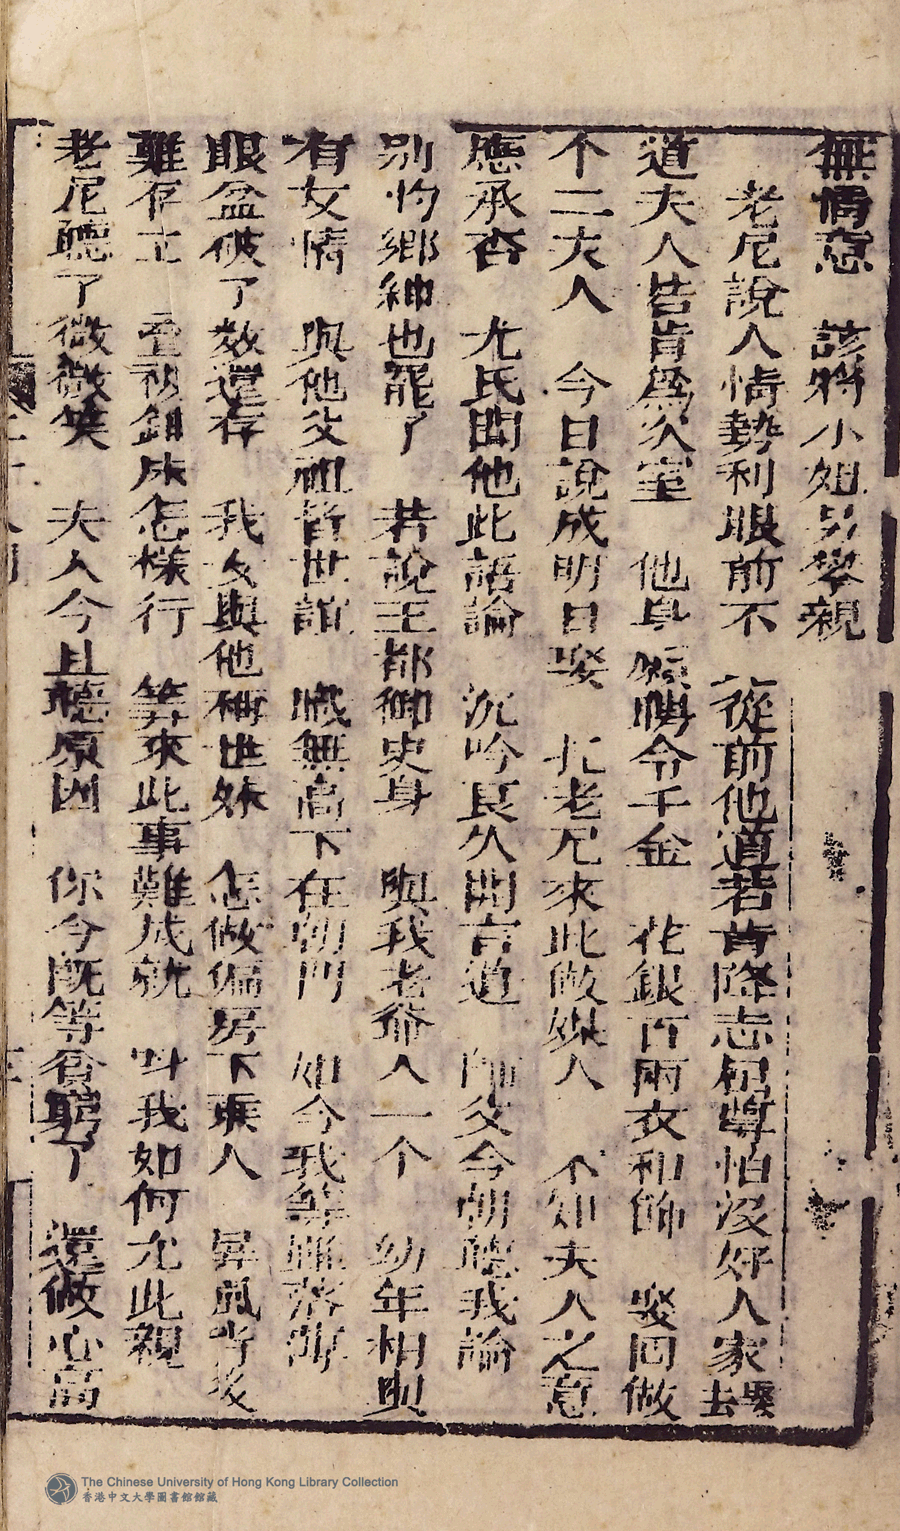 無情意　該將小姐另擇親
老尼說人情勢利眼前不　從前他道若肯降志屈尊怕没好人家去娶
道夫人若肯為次室　他身願聘令千金　花銀百兩衣和飾　娶回做
不二夫人　今日說成明日娶　老尼來此做媒人　不知夫人之意
應承否　尤氏聞他此語論　沉吟良久開言道　師父今朝聽我論
别的鄉紳也罷了　若說王都御史身　與我老爺人一个　幼年相與
有女情　與他父祖皆世誼　職無高下在朝門　如今我等雖落薄
眼盆破了效還存　我女與他稱世妹　怎做偏房下乘人　
難存立　怎樣行　算來此事難成就　叫我如何允此親
老尼聽了微微笑　夫人今且聽原因　你今既等食窮了　還做心高
The Chinese University of Hong Kong Library Collection
香港中文大學圖書館館藏